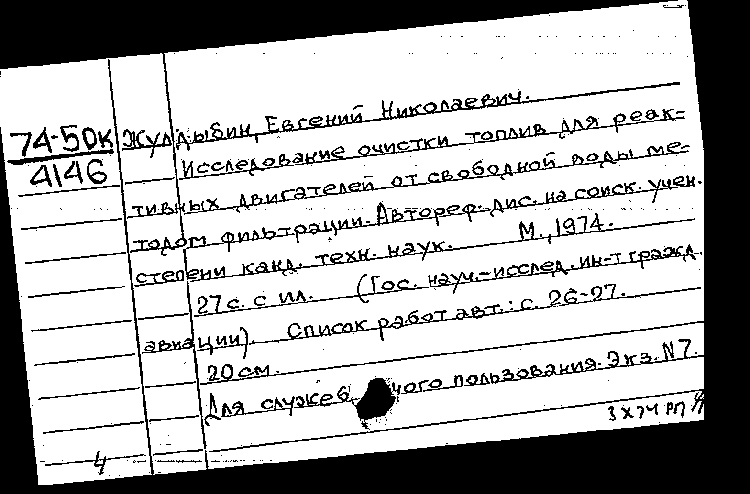 74-5DK Жулдыбин, Евгений Николаевич.
4146 Исследование очистки топлив для реак-
тивных двигателей от свободной воды ме-
тодом фильтрации. Автореф. дис. на соиск. учен.
степени канд. техн. наук. М., 1974.
27 с. с ил. (Гос. науч.-исслед. ин-т гражд.
авиации). Список работ авт.: с. 26-27.
20 см.
Для служебного пользования. Экз. N 7.
4